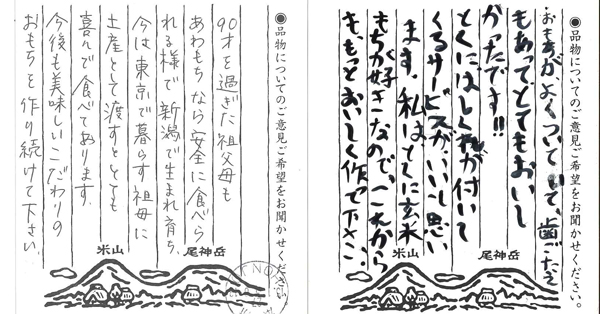 ◉品物についてのご意見ご希望をお聞かせください。
おもちがよくついていて、歯ごたえ
もあってとてもおいし
かったです!!
とくにはしくれが付いて
くるサービスが、いいし思い
ます。私はとくに玄米
もちが好きなので、これから
も、もっとおいしく作って下さい。
米山
尾神岳
◉品物についてのご意見ご希望をお聞かせください。
90才を過ぎた祖父母も
あわもちなら安全に食べら
れる様で新潟で生まれ育ち、
今は東京で暮らす祖母に
土産として渡すととても
喜んで食べてあります。
今後も美味しいこだわりの
おもちを作り続けて下さい
米山
尾神岳